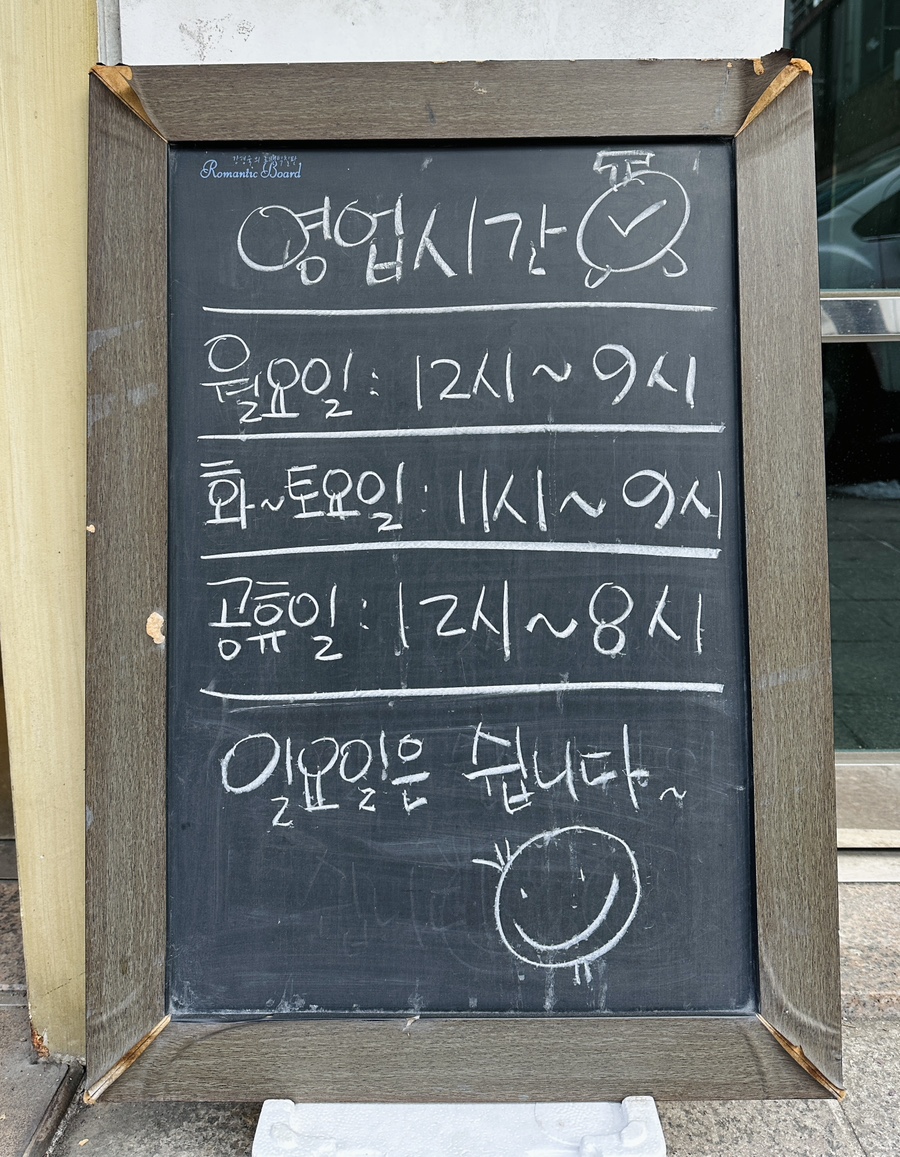 Romantic Board
영업시간
월요일 : 12시~9시
화~토요일 : 11시~9시
공휴일 : 12시~8시
일요일은 쉽니다~